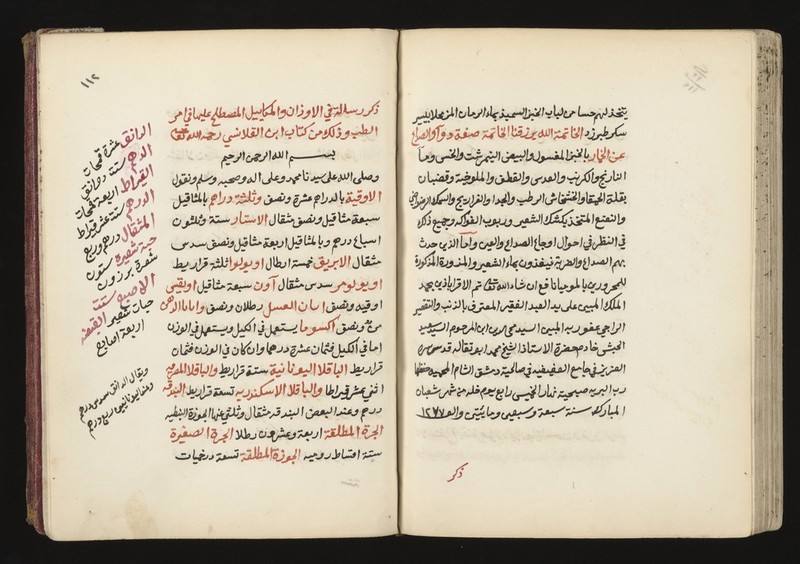 يتخذ لهم حسا من لباب الخبز السميذ بماء الرمان المز محلا بيسير
سكر طبرزد الخاتمة الله يرزقنا الخاتمة صفة دواء الصداع
عن الخمار بالخبز المغسول والبيض النيمرشت والخس وماء
النارنج والكرنب والعدس والقطف والملوخية وقضبان
بقلة الحمقا والخشخاش الرطب والجداء والفراريج والسمك الرضراضي
والنعنع المتخذ بكشك الشعير وربوب الفواكه وجميع ذكره
في النظر في احوال اوجاع الصداع والعين واما الذين حدث
بهم الصداع والضربة فيغذون بماء الشعير والمزورة المذكورة
للمحرورين بالموحيانافع ان شاء الله تعالى تم الاقراباذين بحمد
الملك المبين على يد العبد الفقير المعترف بالذنب والتقصير
الراجي عفو ربه المبين السيد محي الدين ابن المرحوم السيد سعيد
الحبشي خادم حضرة الاستاذ الشيخ محمد ابو تقاله قدس سره
العزيز في جامع العفيف في صالحية دمشق الشام المحمية حفظها
رب البريه صبيحة نهار الخميس رابع يوم خلا من شهر شعبان
المبارك سنة سبعة وسبعين ومايتين والف ١٢٧٧
ذكر
١١٢
ذكر رسالة في الاوزان والمكاييل المصطلح عليها في امر
الطب وذلك من كتاب ابن القلانسي رحمه الله تعالى
بسم الله الرحمن الرحيم
وصلى الله على سيدنا محمد وعلى اله وصحبه وسلم ونقول
الاوقية بالدراهم عشرة ونصف وثلثة دراهم بالمثاقيل
سبعة مثاقيل ونصف مثقال الاستار ستة وثلثون
اسباع درهم وبالمثاقيل اربعة مثاقيل ونصف سدس
مثقال الابريق خمسة ارطال اوبولوا ثلثة قراريط
اوبولومر سدس مثقال آون سبعة مثاقيل اويقى
اوقيه ونصف ابان العسل رطلان ونصف وابانا الدهن
من ونصف اكسوما يستعمل في الكيل ويستعمل في الوزن
اما في الكيل فثمان عشرة درهما وان كان في الوزن فثمان
قراريط الباقلا اليونانية ستة قراريط والباقلا المصرية
اثني عشر قيراطا والباقلا الاسكندريه تسعة قراريط البندقه
درهم وعند البعض البندقه مثقال وثلثي عنها الجوزة النبطيه
الجرة المطلقة اربعة وعشرون رطلا الجرة الصغيرة
ستة اقساط روميه الجوزة المطلقة تسعة درخميات
الدانق عشرة قمحات
الدرهم ستة دوانق
القيراط اربعة قمحات
الدرهم ستة عشر قيراط
المثقال درهم وربع
حبة شعيرة ستون
شعرة برزون
الاصبع ست
حبات شعير القبضه
اربعة اصابع
ويقال الدانق سدس درهم
وعند اليونانيون ربع درهم